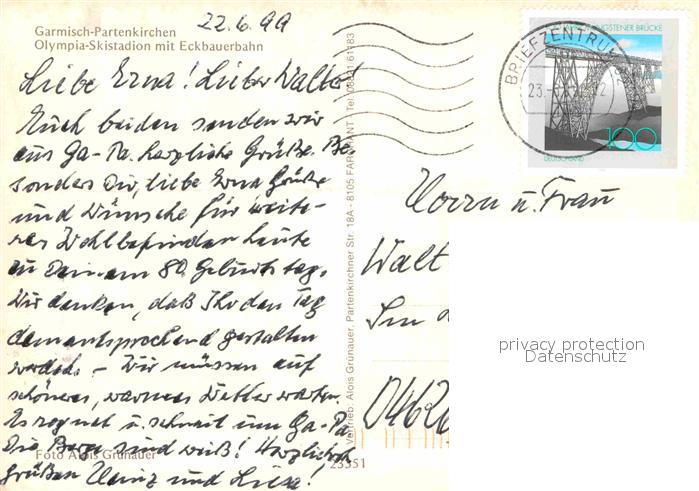 22.6.99
Garmisch-Partenkirchen
Olympia-Skistadion mit Eckbauerbahn
Liebe Erna! Lieber Walter
Euch beiden senden wir
aus Ga-Pa. herzliche Grüße. Be-
sonders Dir, liebe Erna Grüße
und Wünsche für weite-
res Wohlbefinden heute
zu Deinem 80. Geburtstag.
Wir denken, daß Ihr den Tag
dementsprechend gestalten
werdet. – Wir müssen auf
schöneres, warmes Wetter warten.
Es regnet u. schneit um Ga-Pa.
Die Berge sind weiß! Herzlichst
grüßen Heinz und Luise!
Foto Alois Grünauer
23351
Vertrieb: Alois Grünauer, Partenkirchner Str. 18A - 8105 FARCHANT
BRIEFZENTRUM
23.
NGSTENER BRÜCKE
100
DEUTSCHLAND
Herrn u. Frau
Walt
04626
privacy protection
Datenschutz